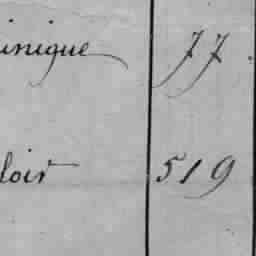 inique 77.
loir 519